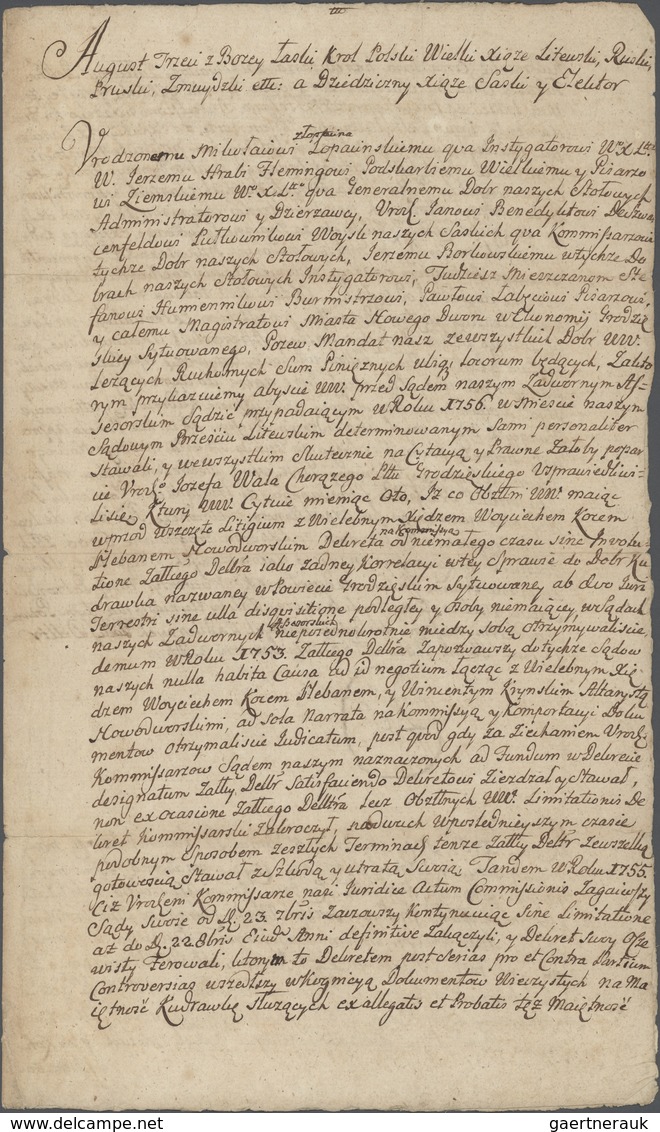 August Trzeci z Bozey Łaski, Krol Polski Wielki Xiąże Litewski, Ruski,
Pruski, Zmuydzki etc: a Dziedziczny Xiąze Saski y Elektor
Vrodzonemu Mikołaiowi Łopacinskiemu qva Instygatorowi W° X Litt°
W. Jerzemu Hrabi Flemingowi Podskarbiemu Wielkiemu y Pisarzo
wi Ziemskiemu W° X Litt° qva Generalnemu Dobr naszych Stołowych
Administratorowi y Dzierzawcy, Vrodz Janowi Benedyktowi
cenfeldowi Pułkownikowi Woysk naszych Saskich qva Kommissarzowi
tychze Dobr naszych Stołowych, Jerzemu Borkowskiemu wtychze Do
brach naszych Stołowych Instygatorowi, Tudziesz Mieszczanom Ste
fanowi Burmistrzowi, Pawłowi Łabęciowi Pisarzowi,
y całemu Magistratowi Miasta Nowego Dworu w Ekonomij Grodzie
skiey Sytuowanego, Pozew Mandat nasz ze wszystkich Dobr WW.
Lezących Ruchomych Sum Pinięznych ubiq locorum będących, Zakto
rym przykazuiemy abyscie WW. przed Sądem naszym Zadwornym As=
sesorskim Sądzie przypadaiącym w Roku 1756. w Miescie naszym
Sądowym Brześciu Litewskim determinowanym sami personaliter
stawali, y wewszystkim skutecznie na Cytacyą y Prawne Załoby popar
cie Vrodz° Jozefa Wala Chorązego Pttu Grodzieskiego Vsprawiedliwi=
lisie, Ktury WW. Cytuie mieniąc oto, Iz co Obżtni WW. maiąc
wprzod wszczęte Litigium z Wielebnym Xiędzem Woyciechem Kocem
Plebanem Nowodworskim Dekreta na Komissyą od niemałego czasu sine Involu
tione Załłcego Delktra iako zadney Korrelacyi wtey Sprawie do Dobr Ku
drawka nazwaney w Powiecie Grodzięskim Sytuowaney ab dvo Juri
Terrestri sine ulla disquisitione podległey y Osoby niemaiącey w Sądach
naszych Zadwornych Assesorskich niepoiednokrotnie miedzy sobą otrzymywaliscie,
demum W Roku 1753. Załłcego Delktra Zapozwawszy do tychze Sądow
naszych nulla habita Causa ad id negotium łącząc z Wielebnym Xię
dzem Woyciechem Kocem Plebanem, y Wincentym Kiynskim Altarystą
Nowodworskimi, ad sola Narrata na Kommissyą y Komportacyi Doku
mentow otrzymaliscie Judicatum, post quod gdy za Ziechaniem Vrodz
Kommissarzow Sądem naszym naznaczonych ad Fundum w Dekrecie
designatum Załłcy Delktr Satisfaciendo Dekretowi Ziezdzał y Stawał,
non ex ocasione Załłcego Delktra lecz Obżtnych WW. Limitationis De
kret Kommissarski Zakroczył, na dwuch wposlednieyszym czasie
podobnym Sposobem zeszłych Terminach tenze Załłcy Delktr zewszelką
gotowoscią Stawał z Szkodą y utratą Swoią, Tandem W Roku 1755
Ciz Vrodzeni Kommissarze nasi Juridice Actum Commissionis Zagaiwszy
Sądy swoie od D. 23. 7bris Zacząwszy kontynuuiąc sine Limitatione
aż do D. 22. 8bris Eiusd Anni definitive Zakączyli, y Dekret swoy Ocze
wisty Ferowali, ktorym to Dekretem post Serias pro et Contra Partium
Controversias wszedłszy w Kognicyą Dokumentow Wieczystych na Ma
iętność Kudrawkę Służących ex allegatis et Probatis tęż Maiętność
gaertnerauk
www.delcampe.net